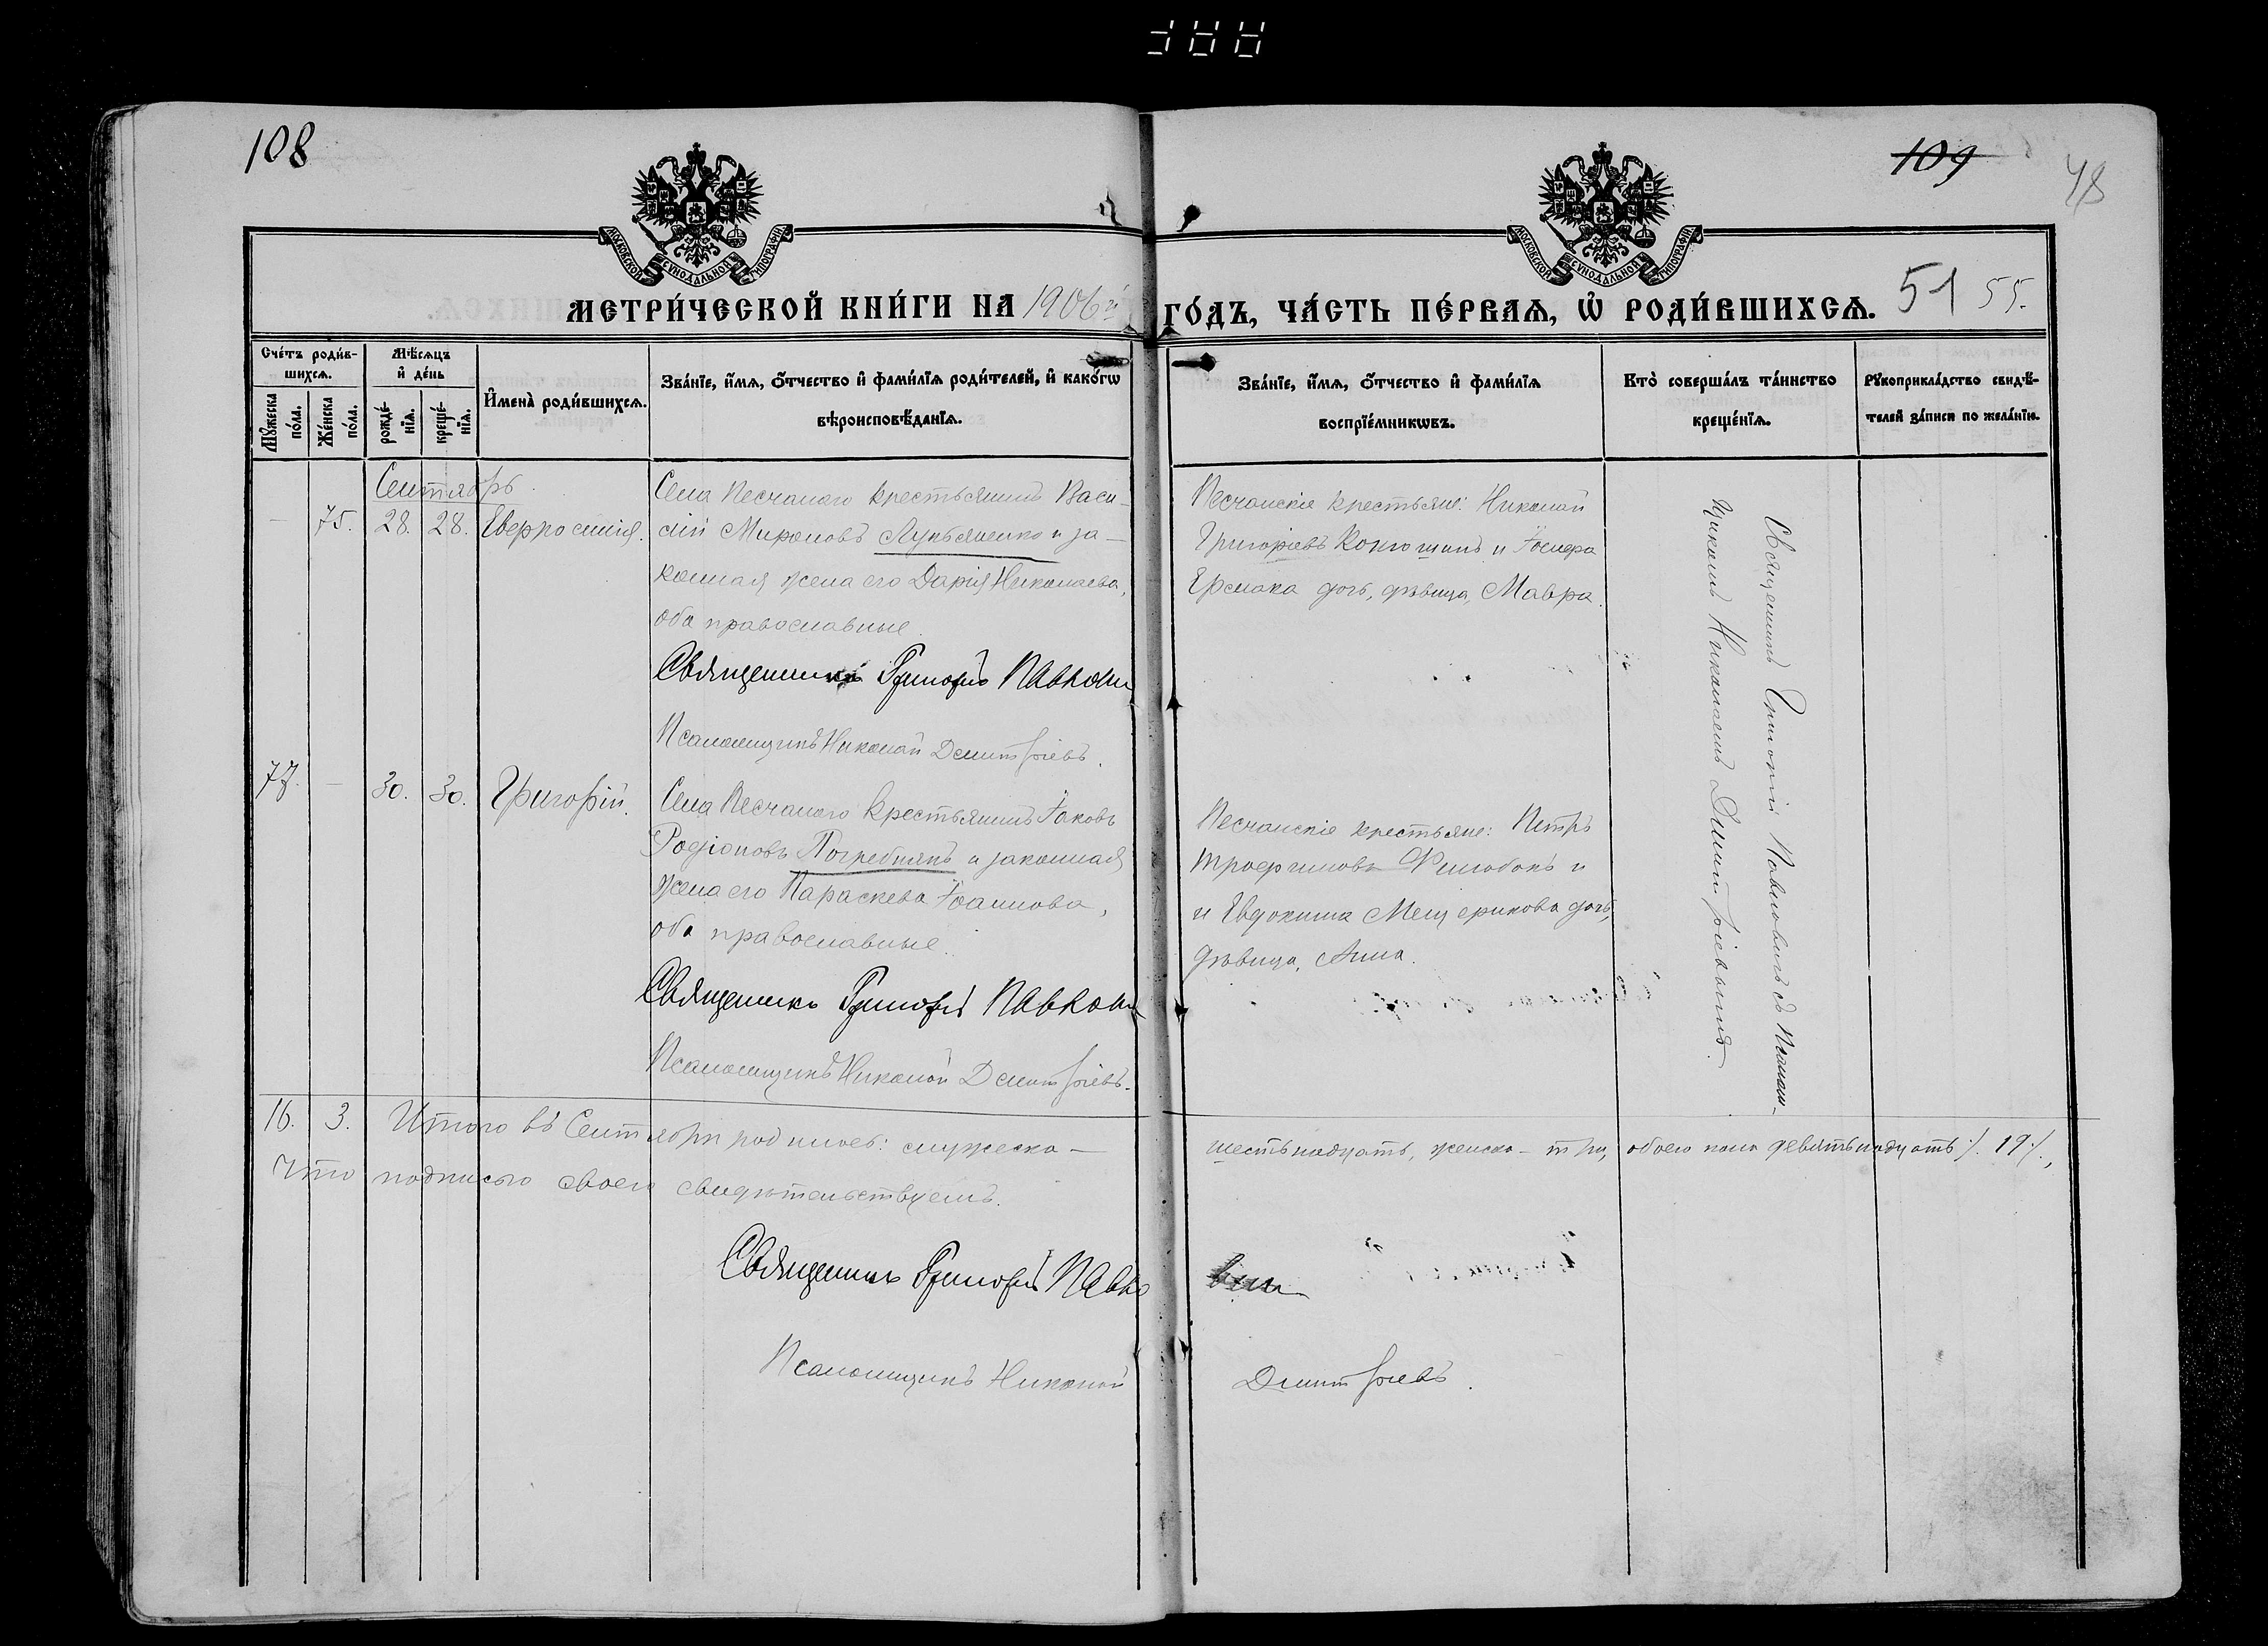 108
109
48
МОСКОВСКОЙ СѴНОДАЛЬНОЙ ТИПОГРАФІИ
МОСКОВСКОЙ СѴНОДАЛЬНОЙ ТИПОГРАФІИ
МЕТРИ́ЧЕСКОЙ КНИ́ГИ НА 1906й
ГО́ДЪ, ЧА́СТЬ ПЕ́РВАѦ, Ѡ҆ РОДИ́ВШИХСѦ. 51 55.
Сче́тъ роди́в-
шихсѧ.
Мꙋ́жеска
по́ла.
Же́нска
по́ла.
Мѣ́сѧцъ
и҆ де́нь
рожде́-
нїѧ.
креще́-
нїѧ.
И҆мена̀ роди́вшихсѧ.
Зва́нїе, и҆́мѧ, ѻ҆́тчество и҆ фами́лїѧ роди́телей, и҆ како́гѡ
вѣроисповѣ́данїѧ.
Зва́нїе, и҆́мѧ, ѻ҆́тчество и҆ фами́лїѧ
воспрїе́мникѡвъ.
Кто̀ соверша́лъ та́инство
креще́нїѧ.
Рꙋкоприкла́дство свидѣ́-
телей за́писи по жела́нїю.
Сентябрь.
— 75. 28. 28. Евфросинія.
Села Песчанаго крестьянинъ Васи-
лій Мироновъ Лукьяненко и за-
конная жена его Дарія Николаева,
оба православные.
Священникъ Григорій Павлович
Псаломщикъ Николай Димитріевъ.
Песчанскіе крестьяне: Николай
Григоріевъ Конюшинъ и Іосифа
Ермака дочь, дѣвица, Мавра.
Священникъ Григорій Павловичъ съ Псалом-
щикомъ Николаемъ Димитріевымъ.
77. — 30. 30. Григорій.
Села Песчанаго крестьянинъ Іаковъ
Родіоновъ Погребнякъ и законная
жена его Параскева Іоаннова,
оба православные.
Священникъ Григорій Павлович
Псаломщикъ Николай Димитріевъ.
Песчанскіе крестьяне: Петръ
Трофимовъ и
и Евдокима Мещерякова дочь,
дѣвица, Анна.
16. 3. Итого въ Сентябрѣ родилось: мужеска —
шестьнадцать, женска — три, обоего пола девятьнадцать /. 19 /.,
Что подписью своею свидѣтельствуемъ.
Священникъ Григорій Павло
вич
Псаломщикъ Николай
Димитріевъ.